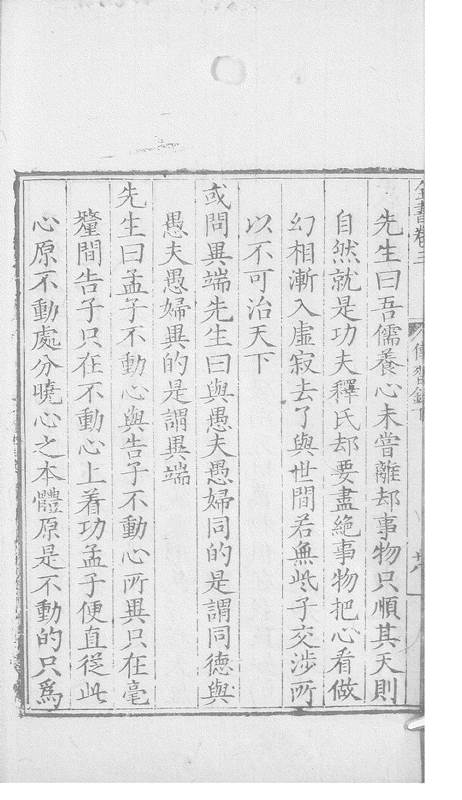 全書卷三 傳習錄下
先生曰吾儒養心未嘗離却事物只順其天則
自然就是功夫釋氏却要盡絕事物把心看做
幻相漸入虛寂去了與世間若無些子交涉所
以不可治天下
或問異端先生曰與愚夫愚婦同的是謂同德與
愚夫愚婦異的是謂異端
先生曰孟子不動心與告子不動心所異只在毫
釐間告子只在不動心上着功孟子便直從此
心原不動處分曉心之本體原是不動的只爲